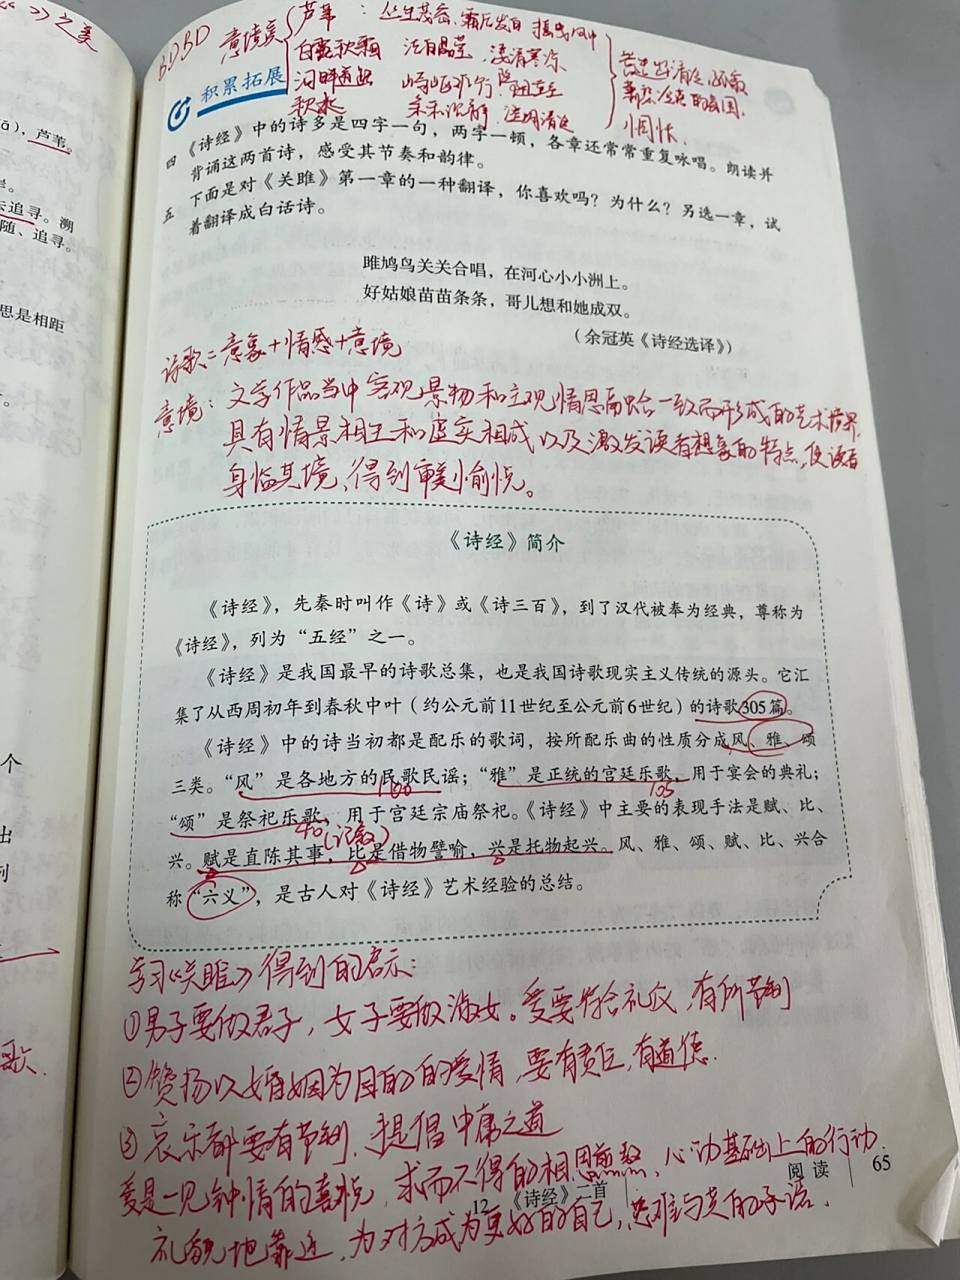 》之美
意境美
芦苇：丛生茂密、霜后发白
白露秋霜
河畔道阻
秋水
积累拓展
四 《诗经》中的诗多是四字一句，两字一顿，各章还常常重复咏唱。朗读并
背诵这两首诗，感受其节奏和韵律。
五 下面是对《关雎》第一章的一种翻译，你喜欢吗？为什么？另选一章，试
着翻译成白话诗。
雎鸠鸟关关合唱，在河心小小洲上。
好姑娘苗苗条条，哥儿想和她成双。
（余冠英《诗经选译》）
诗歌=意象+情感+意境
意境：文学作品当中客观景物和主观情思融合一致而形成的艺术境界，
具有情景相生和虚实相成以及激发读者想象的特点，使读者
身临其境，得到审美愉悦。
《诗经》简介
《诗经》，先秦时叫作《诗》或《诗三百》，到了汉代被奉为经典，尊称为
《诗经》，列为“五经”之一。
《诗经》是我国最早的诗歌总集，也是我国诗歌现实主义传统的源头。它汇
集了从西周初年到春秋中叶（约公元前11世纪至公元前6世纪）的诗歌305篇。
《诗经》中的诗当初都是配乐的歌词，按所配乐曲的性质分成风、雅、颂
三类。“风”是各地方的民歌民谣；“雅”是正统的宫廷乐歌，用于宴会的典礼；
160
105
“颂”是祭祀乐歌，用于宫廷宗庙祭祀。《诗经》中主要的表现手法是赋、比、
40（记数）
兴。赋是直陈其事，比是借物譬喻，兴是托物起兴。风、雅、颂、赋、比、兴合
称“六义”，是古人对《诗经》艺术经验的总结。
学习《关雎》得到的启示：
①男子要做君子，女子要做淑女。爱要符合礼仪，有所节制
②赞扬以婚姻为目的的爱情，要有责任，有道德.
③哀乐都要有节制，提倡中庸之道
爱是一见钟情的喜悦，求而不得的相思煎熬、心动基础上的行动.
礼貌地靠近，为对方成为更好的自己，患难与共的承诺.
12 《诗经》二首
阅读 65
，芦苇。
去追寻。溯
随、追寻。
思是相距
个
出
列
歌.